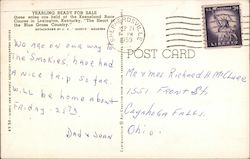 YEARLING READY FOR SALE
these sales are held at the Keeneland Race
Course in Lexington, Kentucky, "The Heart of
the Blue Grass Country."
POST CARD
We are on our way to
the Smokies, have had
a nice trip so far.
Will be home about
Friday - 25th.
Dad & Joan
Mr & Mrs Richard H McClure
1551 Front St
Cuyahoga Falls.
Ohio.
1959
LIBERTY
3¢